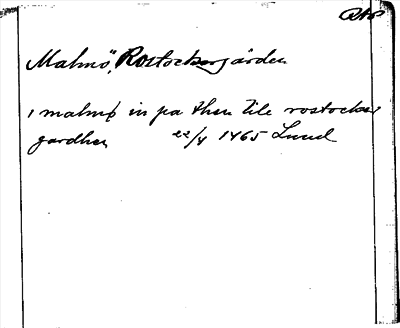 Malmö, Rostockergården
i malmø in pa then tile rostocker
gardhen 22/4 1465 Lund